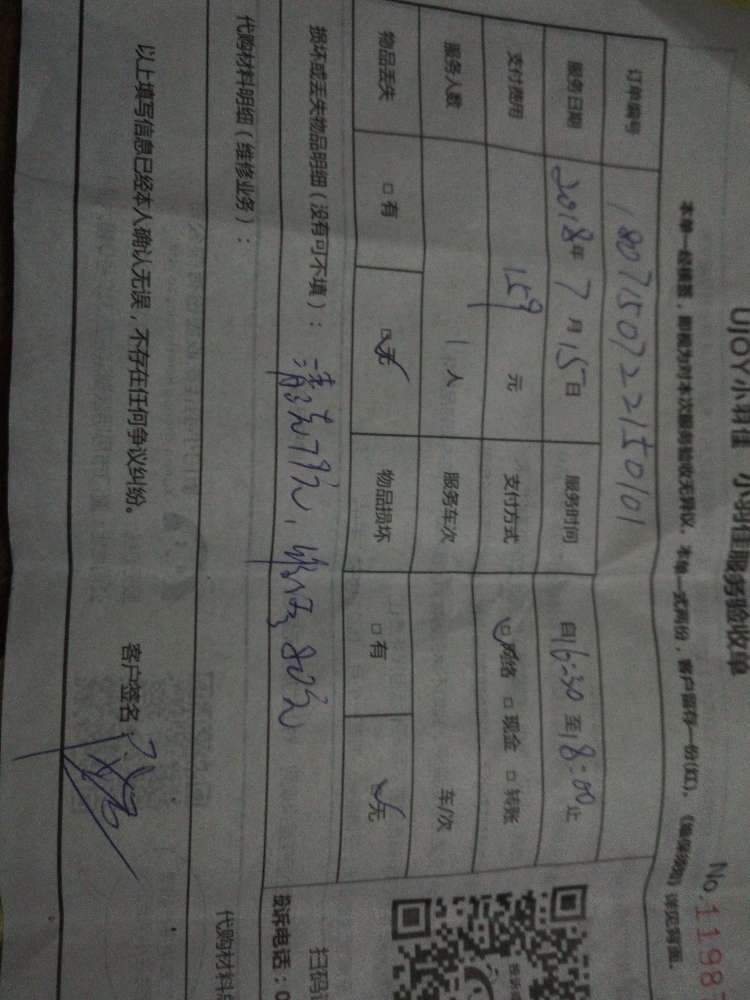 UJOY小羽佳 小羽佳服务验收单
No.1198
本单一经填签，即视为对本次服务验收无异议。本单一式两份，客户留存一份(红)。
订单编号 1807150722150101
服务日期 2018年7月15日 服务时间 自16:30至18:00止
支付费用 159元 支付方式 □网络 □现金 □转账
服务人数 1人 服务车次 车/次
物品丢失 □有 □无 物品损坏 □有 □无
损坏或丢失物品明细（没有可不填）：清洗79元，维修80元
代购材料明细（维修业务）：
以上填写信息已经本人确认无误，不存在任何争议纠纷。
客户签名：
扫码
投诉电话：0
代购材料